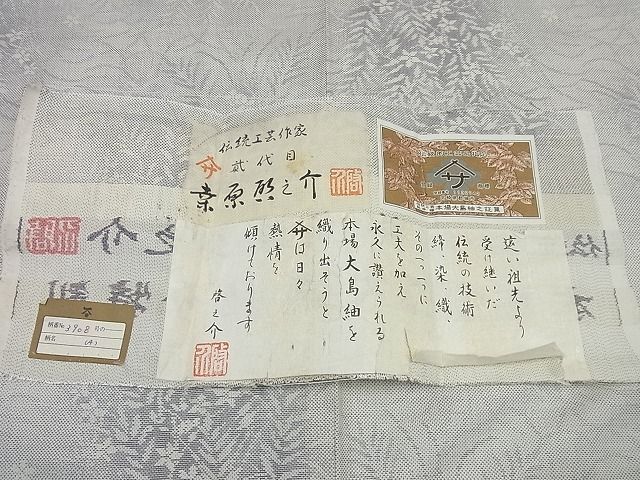 伝統工芸作家
弐代目
桒原啓之介
本場大島紬之証
遠い祖先より
受け継いだ
伝統の技術
絣、染、織、
その一つ一つに
工夫を加え
永久に讃えられる
本場大島紬を
織り出そうと
は日々
熱情を
傾けております
啓之介
柄番No.3908号の
柄名 (4)